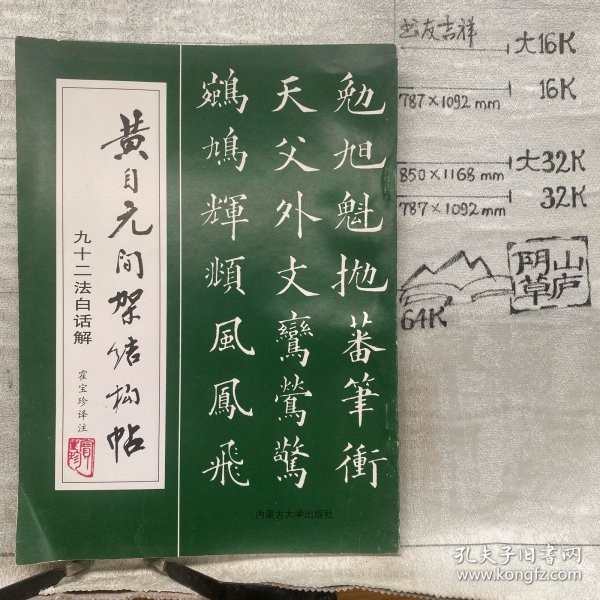 黄自元间架结构帖
九十二法白话解
霍宝珍译注
勉旭魁抛蕃筆衝
天父外丈鸞鶯驚
鵷鳩輝頫風鳳飛
内蒙古大学出版社
书友吉祥
大16K
787×1092mm
16K
850×1168mm
大32K
787×1092mm
32K
64K
孔夫子旧书网
www.kongfz.com